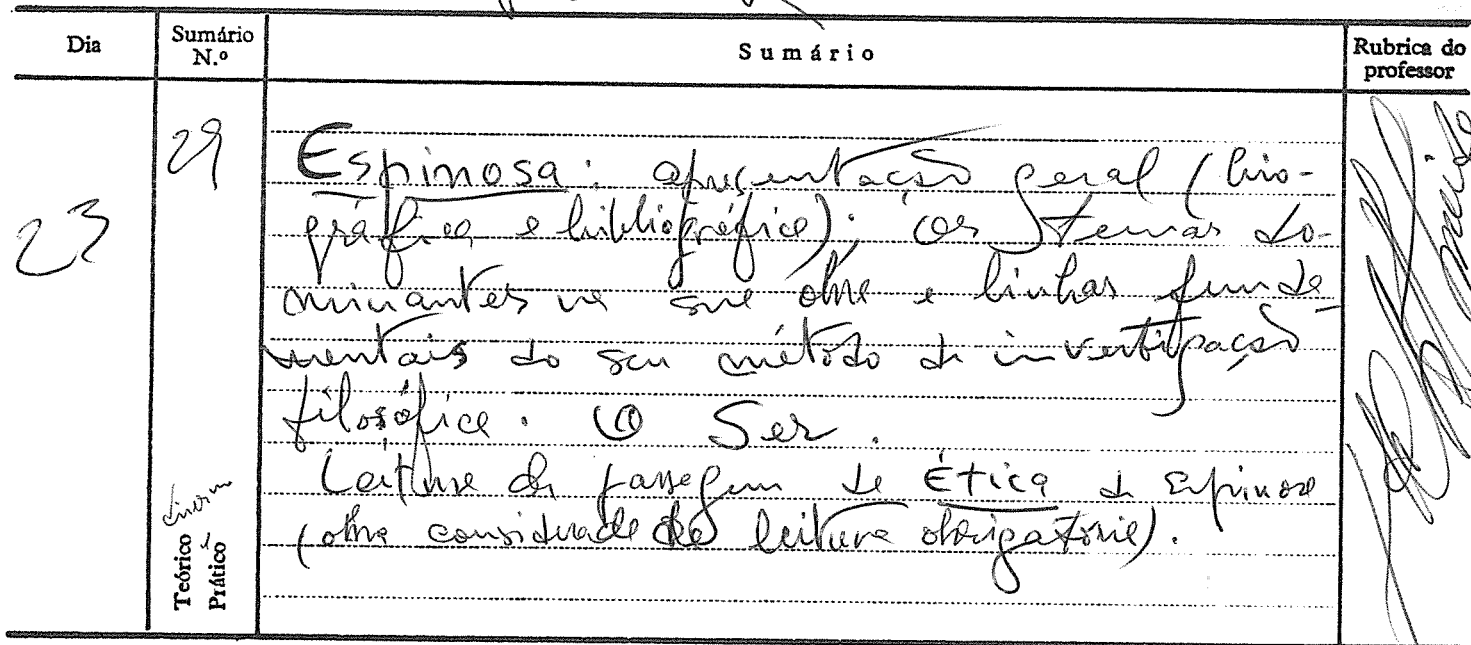 Dia
Sumário N.º
Sumário
Rubrica do professor
23
29
Espinosa: apresentação geral (bio-
gráfica e bibliográfica); os temas do-
minantes na sua obra e linhas funda-
mentais do seu método de investigação
filosófica. O Ser.
Leitura de passagem da Ética de Espinosa
(obra considerada de leitura obrigatória).
Teórico
Prático